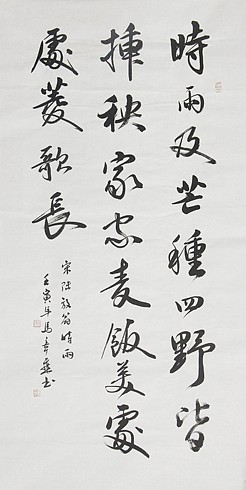 時雨及芒種四野皆
插秧家家麦飯美處
處菱歌長
宋陸放翁時雨
壬寅年馬